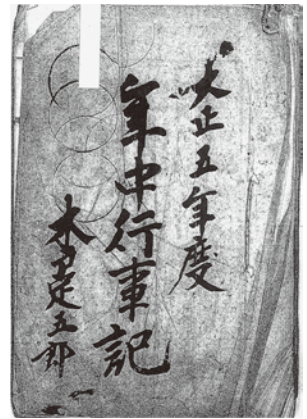 大正五年度
年中行事記
五郎